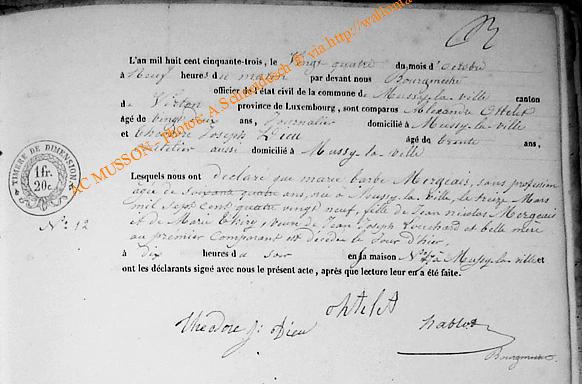 L'an mil huit cent cinquante-trois, le Vingt quatre du mois d'Octobre
à Neuf heures du matin par devant nous Bourgmestre
officier de l'état civil de la commune de Mussy-la-ville canton
de Virton province de Luxembourg, sont comparus Alexandre Ottelet
âgé de vingt ans, Journalier domicilié à Mussy-la-ville
et Théodore Joseph Dieu âgé de trente ans,
aussi domicilié à Mussy-la-ville
Lesquels nous ont déclaré que marie barbe Mergeais, sans profession
agée de soixante quatre ans, née à Mussy-la-ville, le treize Mars
mil sept cent quatre vingt neuf, fille de Jean nicolas Mergeais
et de Marie Thiry, veuve de Jean Joseph et belle mère
au premier Comparant est décédée le Jour d'hier
à dix heures du soir en sa maison à Mussy-la-ville et
ont les déclarants signé avec nous le présent acte, après que lecture leur en a été faite.
TIMBRE DE DIMENSION
1 fr.
20 c.
N° 12
AC MUSSON - Photos: A.Schmidbusch © via http://wallonia
Théodore J. Dieu
ohtelet
Bourgmestre